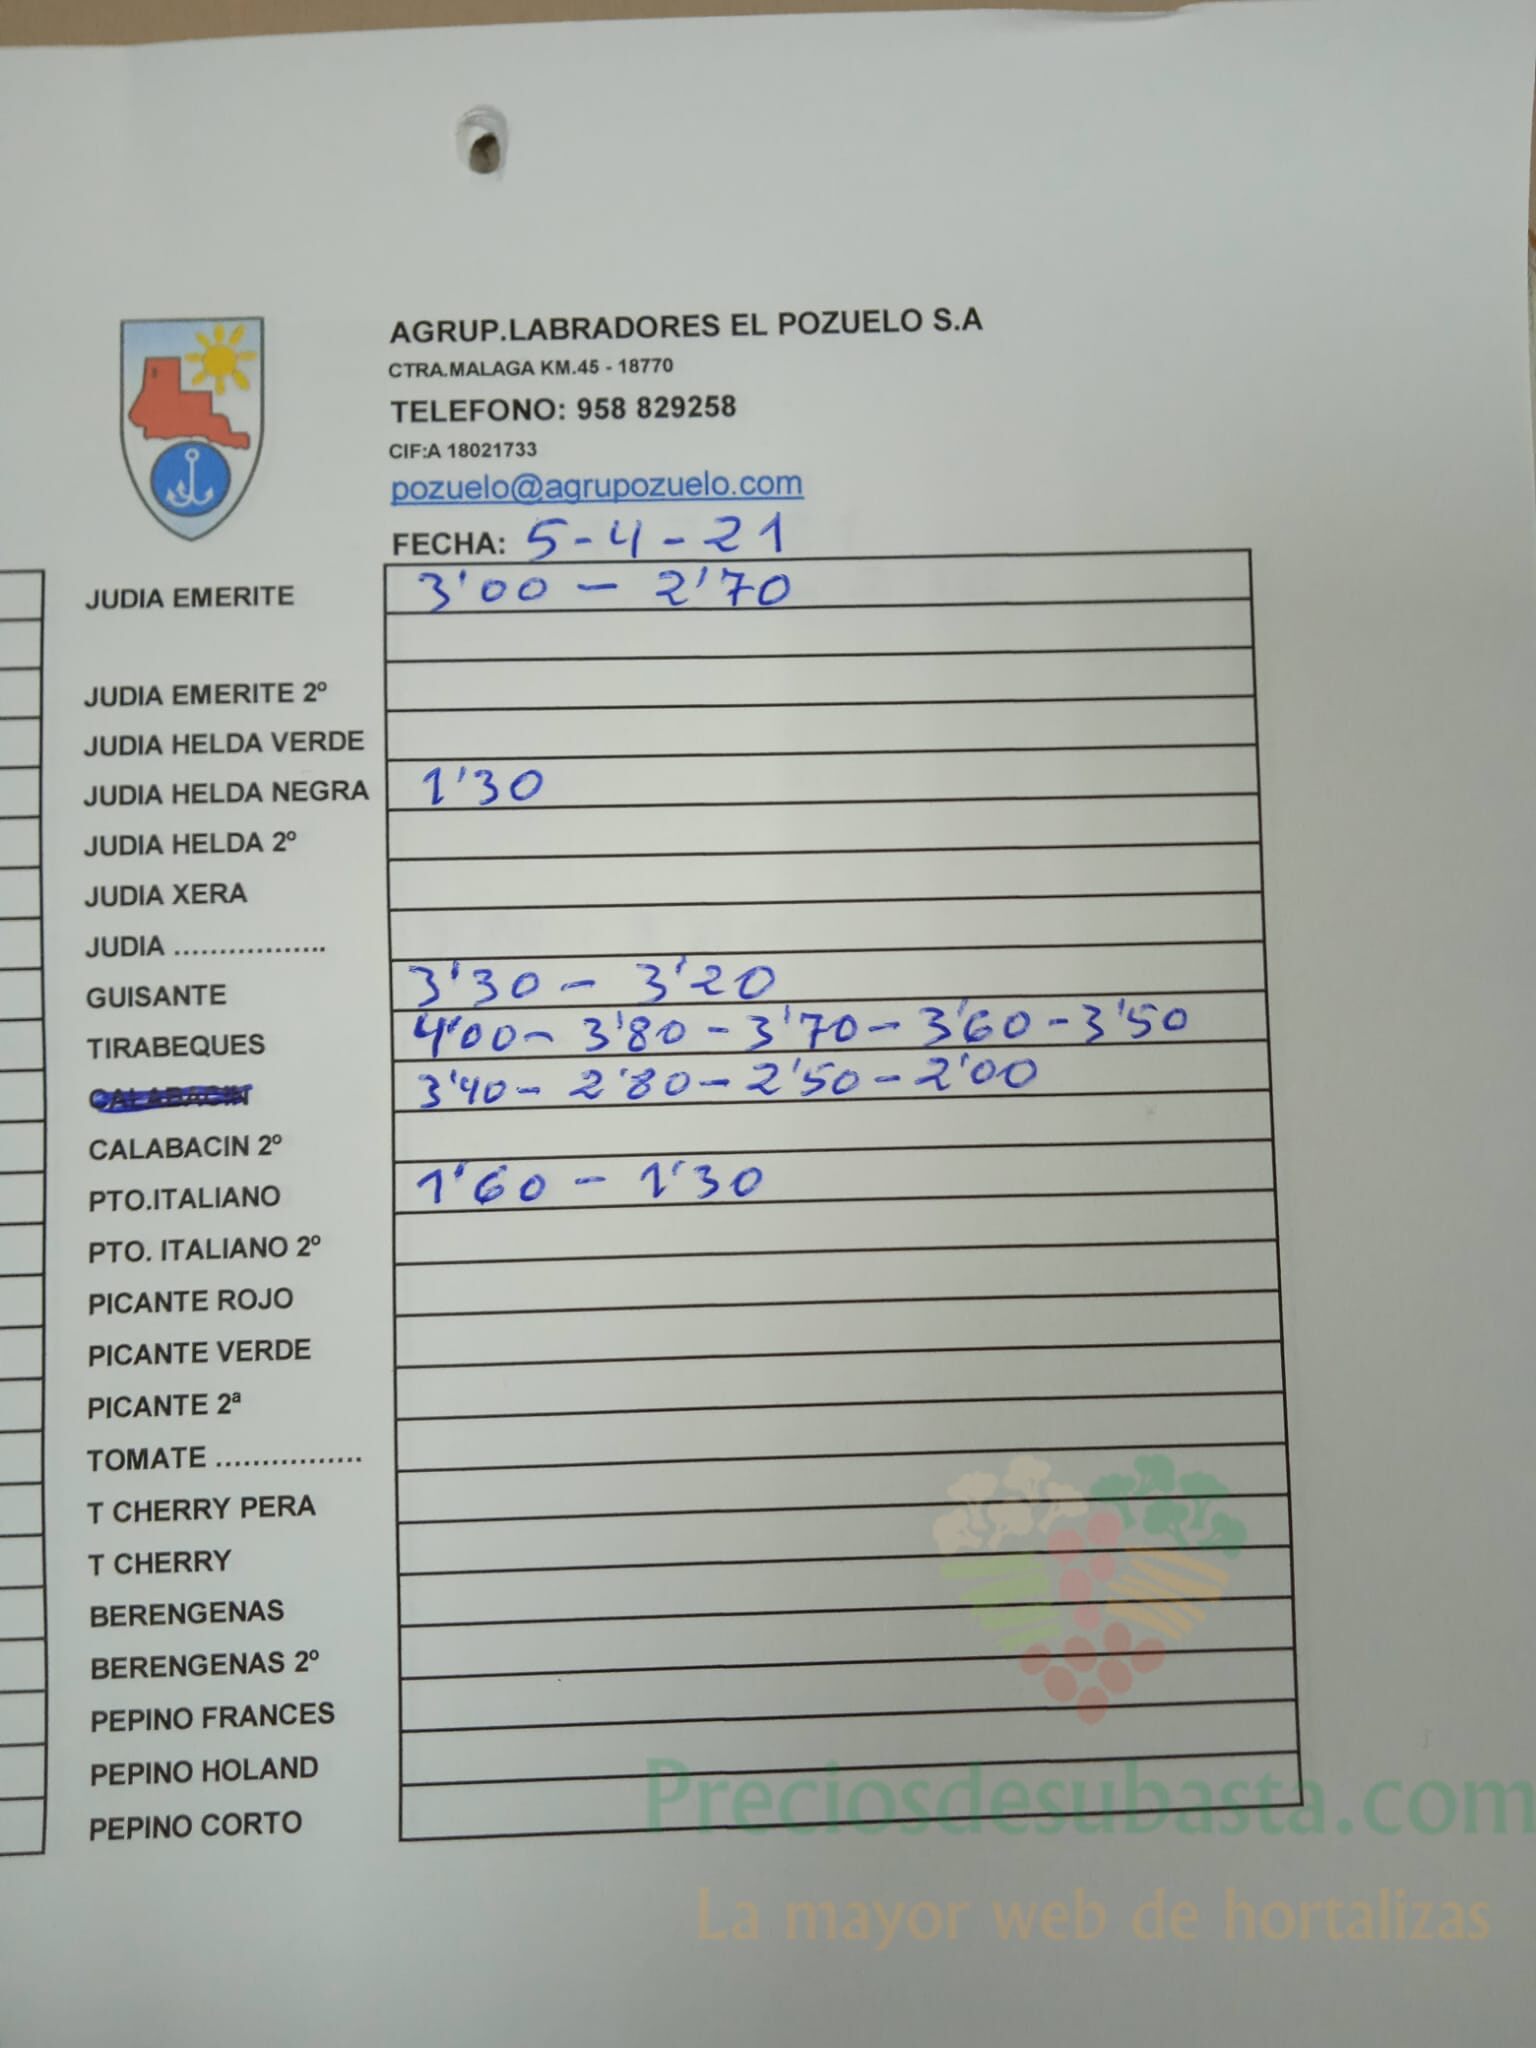 AGRUP.LABRADORES EL POZUELO S.A
CTRA.MALAGA KM.45 - 18770
TELEFONO: 958 829258
CIF:A 18021733
pozuelo@agrupozuelo.com
FECHA: 5-4-21
JUDIA EMERITE 3'00 - 2'70
JUDIA EMERITE 2º
JUDIA HELDA VERDE
JUDIA HELDA NEGRA 1'30
JUDIA HELDA 2º
JUDIA XERA
JUDIA .................
GUISANTE 3'30 - 3'20
TIRABEQUES 4'00 - 3'80 - 3'70 - 3'60 - 3'50
CALABACIN 3'40 - 2'80 - 2'50 - 2'00
CALABACIN 2º
PTO.ITALIANO 1'60 - 1'30
PTO. ITALIANO 2º
PICANTE ROJO
PICANTE VERDE
PICANTE 2ª
TOMATE ................
T CHERRY PERA
T CHERRY
BERENGENAS
BERENGENAS 2º
PEPINO FRANCES
PEPINO HOLAND
PEPINO CORTO
Preciosdesubasta.com
La mayor web de hortalizas